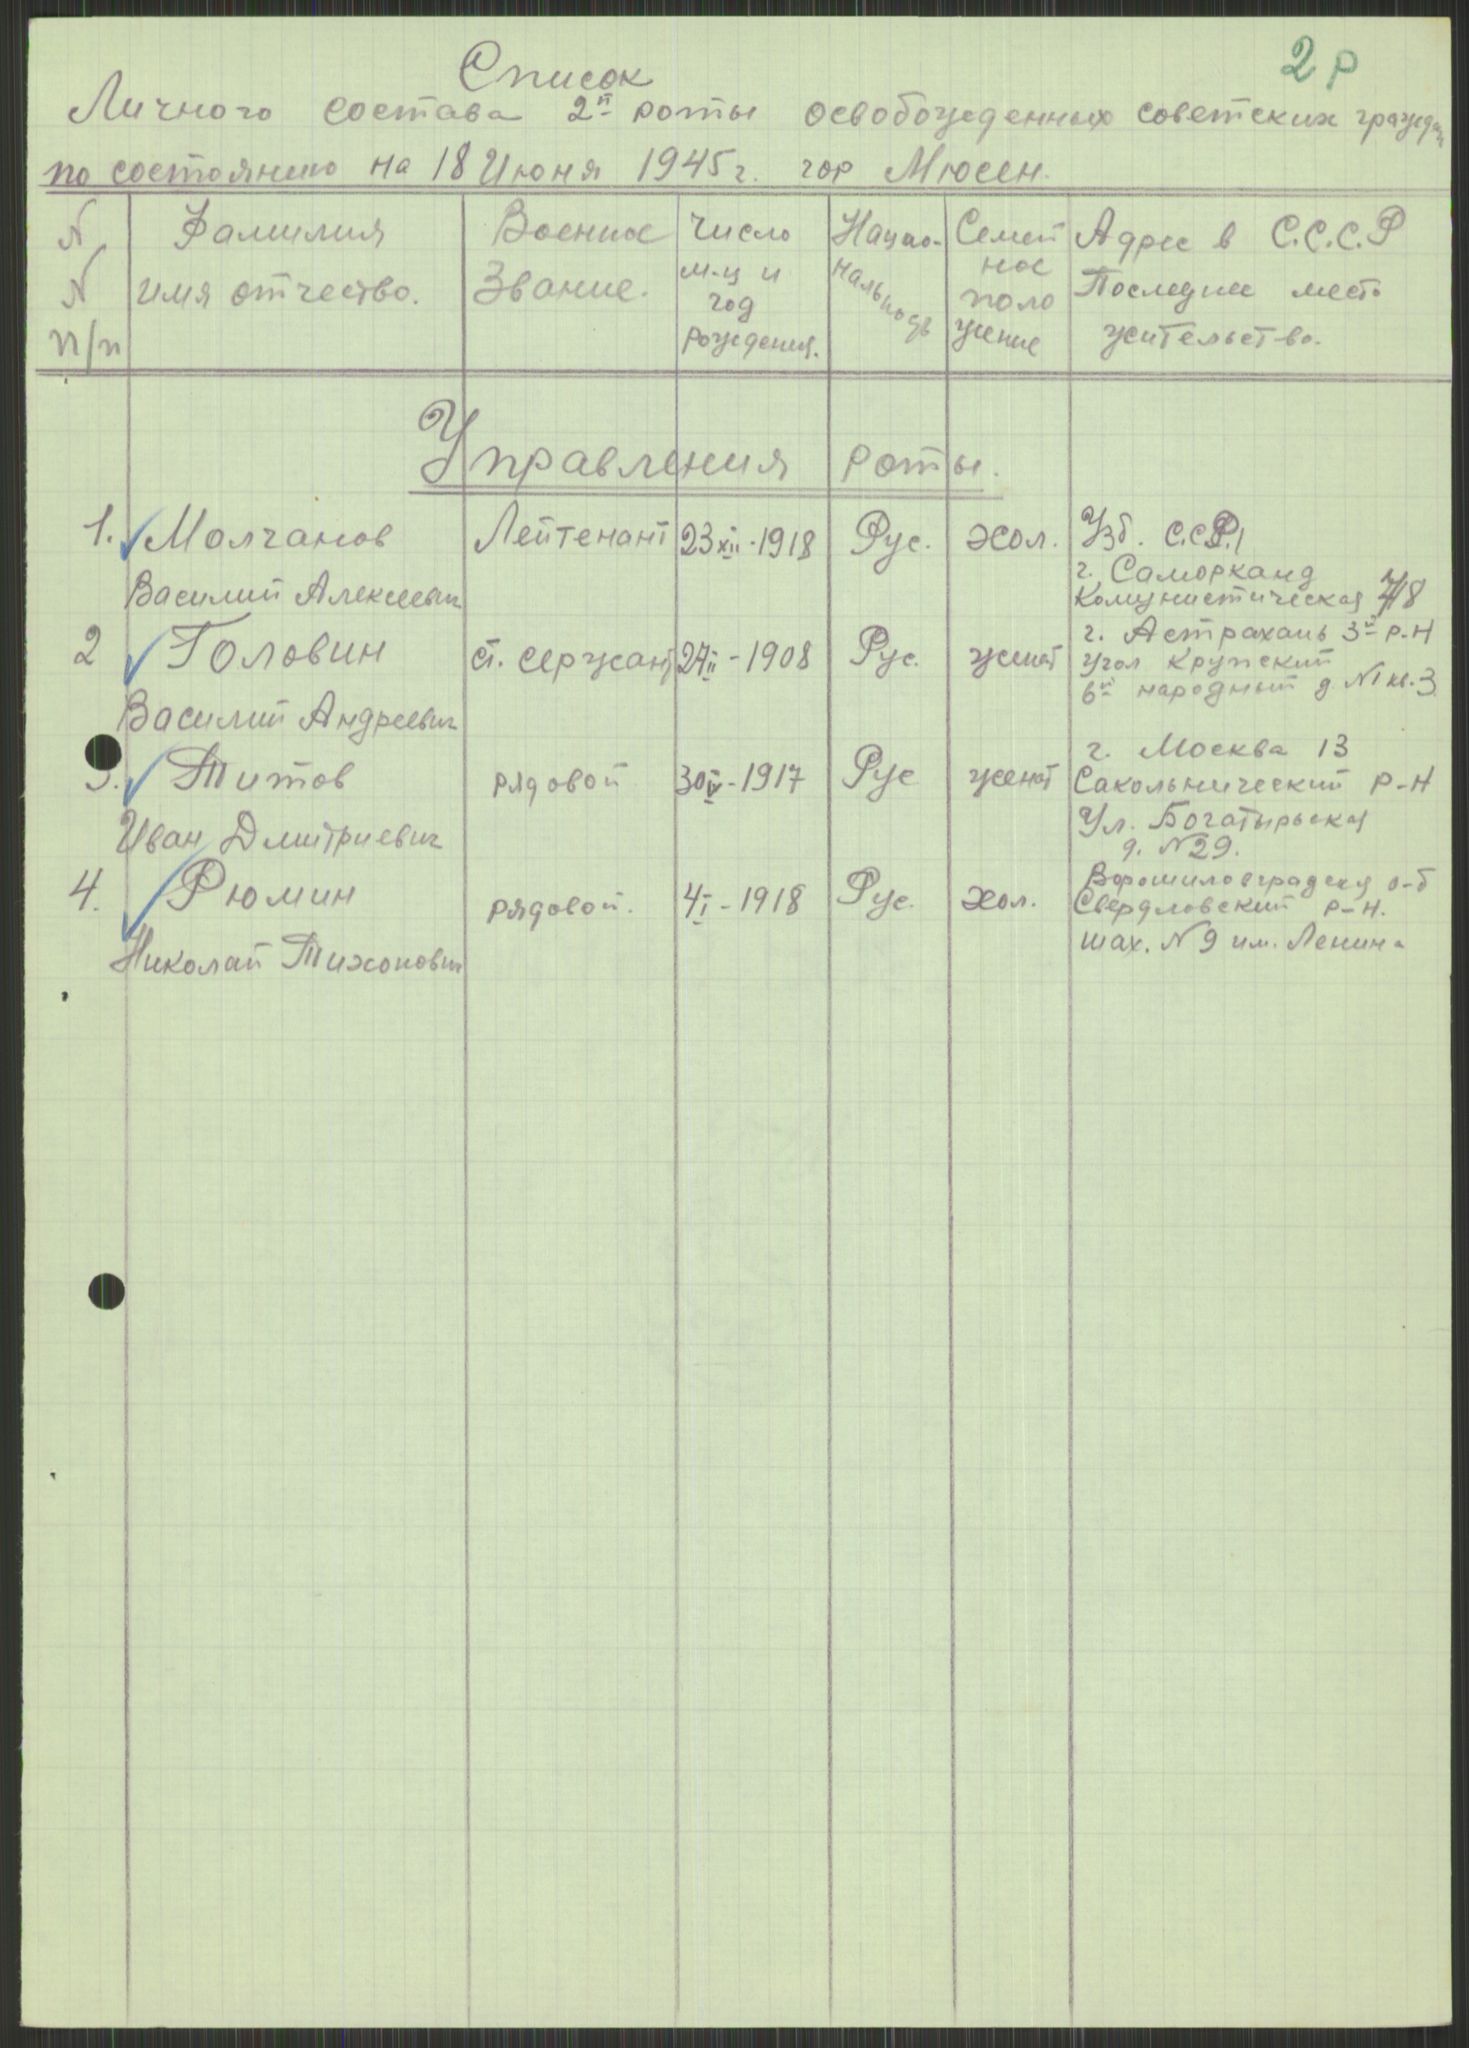 2 р
Список
Личного состава 2й роты освобожденных советских граждан
по состоянию на 18 Июня 1945г. гор Мюсен.
N N п/п
Фамилия имя отчество.
Военное Звание.
Число м-ц и год рождения.
Нацио-нальность
Семей ное поло жение
Адрес в С.С.С.Р Последнее место жительство.
Управления роты.
1. Молчанов Лейтенант 23 XII-1918 Рус. хол. Узб. С.С.Р.
г. Саморканд
Василий Алексеевич Комунистическая
г. Астрахань 3й р-н
2 Головин ст. сержант 27 II-1908 Рус. женат угол Крупский
6й народный д. N1 кв. 3
Василий Андреевич
г. Москва 13
3. Титов рядовой 30 IV-1917 Рус женат Сакольнический р-н
Иван Дмитриевич Ул. Богатырьская
д. N29.
Ворошиловградскя о-б
4. Рюмин рядовой. 4 I-1918 Рус. хол. Свердловский р-н.
Николай Тихонович шах. N9 им. Ленина